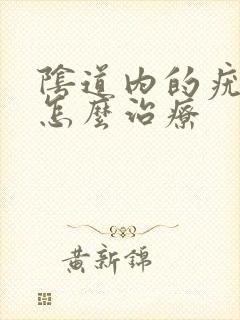 陰道内的疣
怎麼治療
黄新錦